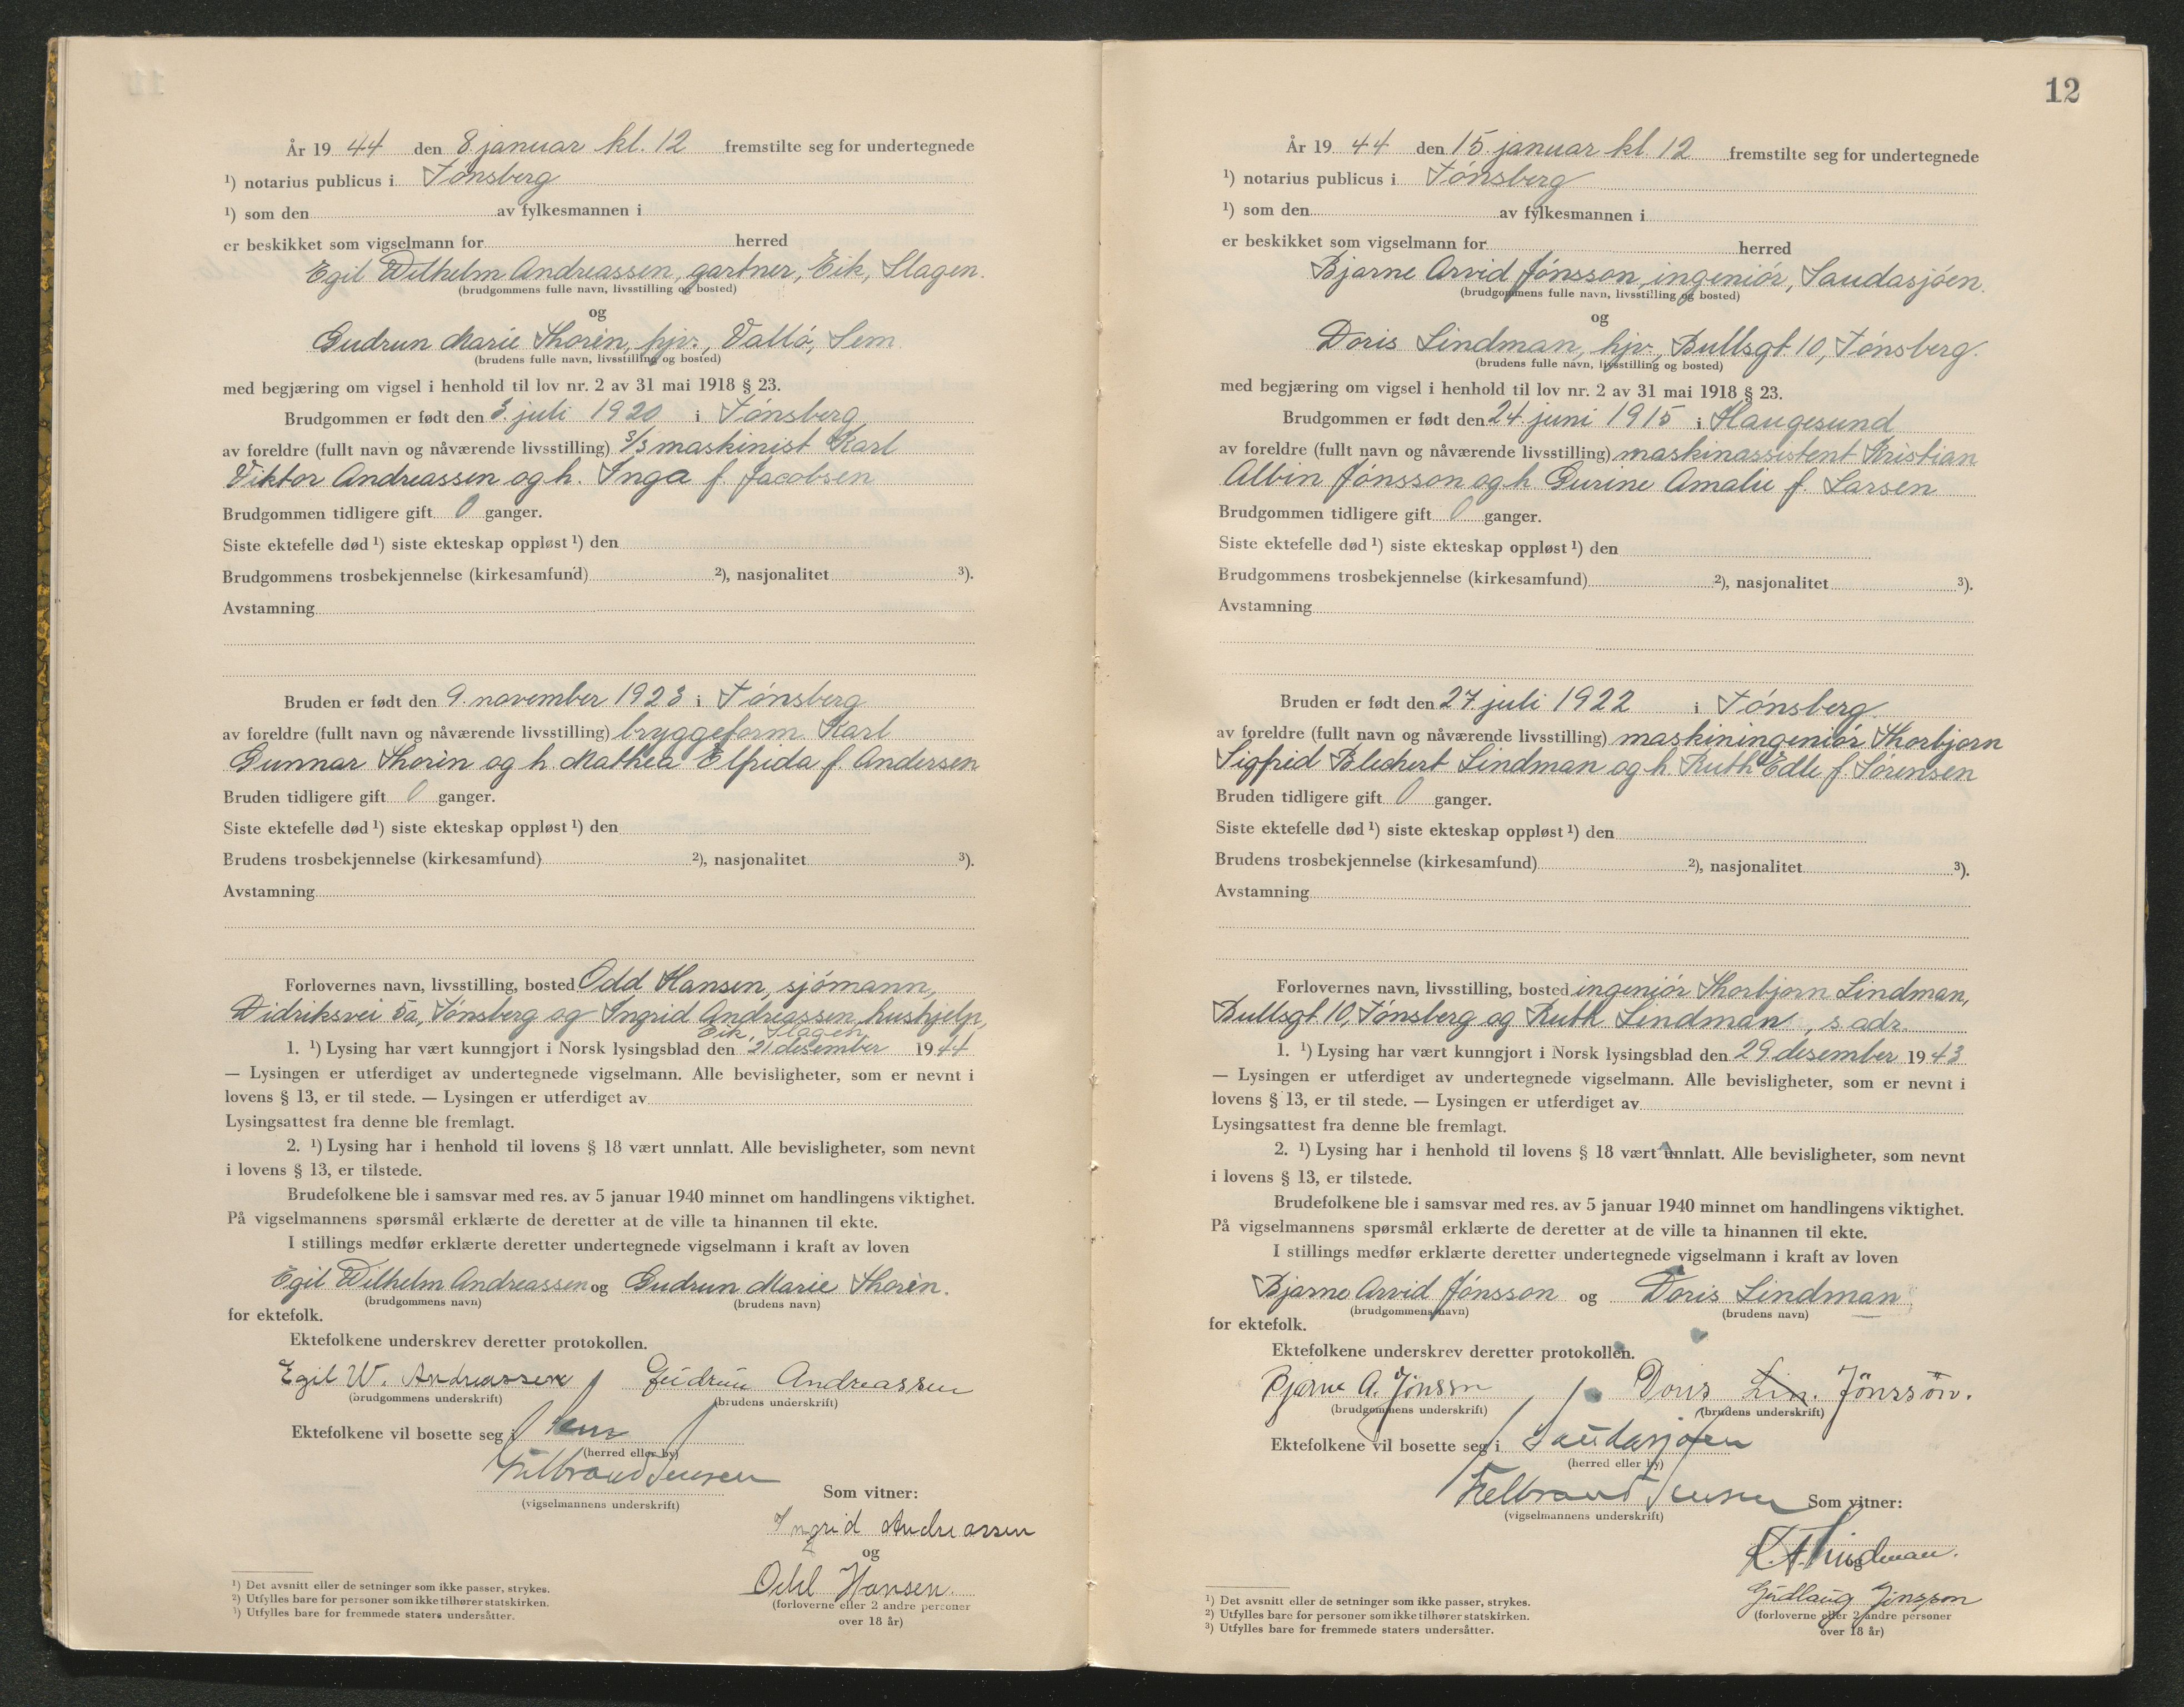 År 19 44 den 8 januar kl. 12 fremstilte seg for undertegnede
¹) notarius publicus i Tønsberg
¹) som den av fylkesmannen i
er beskikket som vigselmann for herred
Egil Wilhelm Andreassen, gartner, Eik, Slagen.
(brudgommens fulle navn, livsstilling og bosted)
og
Gudrun Marie Thorèn, hjv., Valló, Sem
(brudens fulle navn, livsstilling og bosted)
med begjæring om vigsel i henhold til lov nr. 2 av 31 mai 1918 § 23.
Brudgommen er født den 3. juli 1920 i Tónsberg
av foreldre (fullt navn og nåværende livsstilling) s/s maskinist Karl
Viktor Andreassen og h. Inga f. Jacobsen
Brudgommen tidligere gift 0 ganger.
Siste ektefelle død ¹) siste ekteskap oppløst ¹) den
Brudgommens trosbekjennelse (kirkesamfund) ²), nasjonalitet ³).
Avstamning
Bruden er født den 9. november 1923 i Tónsberg
av foreldre (fullt navn og nåværende livsstilling) bryggeform. Karl
Gunnar Thorèn og h. Mathea Elfrida f. Andersen
Bruden tidligere gift 0 ganger.
Siste ektefelle død ¹) siste ekteskap oppløst ¹) den
Brudens trosbekjennelse (kirkesamfund) ²), nasjonalitet ³).
Avstamning
Forlovernes navn, livsstilling, bosted Odd Hansen, sjómann,
Didriksvei 5a, Tónsberg og Ingrid Andreassen, hushjelp,
Eik, Slagen
1. ¹) Lysing har vært kunngjort i Norsk lysingsblad den 21 desember 19 44
— Lysingen er utferdiget av undertegnede vigselmann. Alle bevisligheter, som er nevnt i
lovens § 13, er til stede. — Lysingen er utferdiget av
Lysingsattest fra denne ble fremlagt.
2. ¹) Lysing har i henhold til lovens § 18 vært unnlatt. Alle bevisligheter, som nevnt
i lovens § 13, er tilstede.
Brudefolkene ble i samsvar med res. av 5 januar 1940 minnet om handlingens viktighet.
På vigselmannens spørsmål erklærte de deretter at de ville ta hinannen til ekte.
I stillings medfør erklærte deretter undertegnede vigselmann i kraft av loven
Egil Wilhelm Andreassen og Gudrun Marie Thorèn.
(brudgommens navn) (brudens navn)
for ektefolk.
Ektefolkene underskrev deretter protokollen.
Egil W. Andreassen Gudrun Andreassen
(brudgommens underskrift) (brudens underskrift)
Ektefolkene vil bosette seg i Sem
(herred eller by)
(vigselmannens underskrift)
Som vitner:
Ingrid Andreassen
og
Odd Hansen.
(forloverne eller 2 andre personer
over 18 år)
¹) Det avsnitt eller de setninger som ikke passer, strykes.
²) Utfylles bare for personer som ikke tilhører statskirken.
³) Utfylles bare for fremmede staters undersåtter.
12
År 19 44 den 15. januar kl. 12 fremstilte seg for undertegnede
¹) notarius publicus i Tónsberg
¹) som den av fylkesmannen i
er beskikket som vigselmann for herred
Bjarne Arvid Jónsson, ingeniór, Saudasjóen.
(brudgommens fulle navn, livsstilling og bosted)
og
Doris Lindman, hjv., Bullsgt 10, Tónsberg.
(brudens fulle navn, livsstilling og bosted)
med begjæring om vigsel i henhold til lov nr. 2 av 31 mai 1918 § 23.
Brudgommen er født den 24. juni 1915 i Haugesund
av foreldre (fullt navn og nåværende livsstilling) maskinassistent Kristian
Albin Jónsson og h. Gurine Amalie f. Larsen
Brudgommen tidligere gift 0 ganger.
Siste ektefelle død ¹) siste ekteskap oppløst ¹) den
Brudgommens trosbekjennelse (kirkesamfund) ²), nasjonalitet ³).
Avstamning
Bruden er født den 27. juli 1922 i Tónsberg.
av foreldre (fullt navn og nåværende livsstilling) maskiningeniór Thorbjorn
Sigfrid Blechert Lindman og h. Ruth Edle f. Sórensen
Bruden tidligere gift 0 ganger.
Siste ektefelle død ¹) siste ekteskap oppløst ¹) den
Brudens trosbekjennelse (kirkesamfund) ²), nasjonalitet ³).
Avstamning
Forlovernes navn, livsstilling, bosted ingeniór Thorbjorn Lindman,
Bullsgt 10, Tónsberg og Ruth Lindman, s. adr.
1. ¹) Lysing har vært kunngjort i Norsk lysingsblad den 29 desember 19 43
— Lysingen er utferdiget av undertegnede vigselmann. Alle bevisligheter, som er nevnt i
lovens § 13, er til stede. — Lysingen er utferdiget av
Lysingsattest fra denne ble fremlagt.
2. ¹) Lysing har i henhold til lovens § 18 vært unnlatt. Alle bevisligheter, som nevnt
i lovens § 13, er tilstede.
Brudefolkene ble i samsvar med res. av 5 januar 1940 minnet om handlingens viktighet.
På vigselmannens spørsmål erklærte de deretter at de ville ta hinannen til ekte.
I stillings medfør erklærte deretter undertegnede vigselmann i kraft av loven
Bjarne Arvid Jónsson og Doris Lindman
(brudgommens navn) (brudens navn)
for ektefolk.
Ektefolkene underskrev deretter protokollen.
Bjarne A. Jönsson Doris Lin. Jönssön.
(brudgommens underskrift) (brudens underskrift)
Ektefolkene vil bosette seg i Saudasjøen
(herred eller by)
(vigselmannens underskrift)
Som vitner:
Lindman.
og
Gudlaug Jönsson
(forloverne eller 2 andre personer
over 18 år)
¹) Det avsnitt eller de setninger som ikke passer, strykes.
²) Utfylles bare for personer som ikke tilhører statskirken.
³) Utfylles bare for fremmede staters undersåtter.